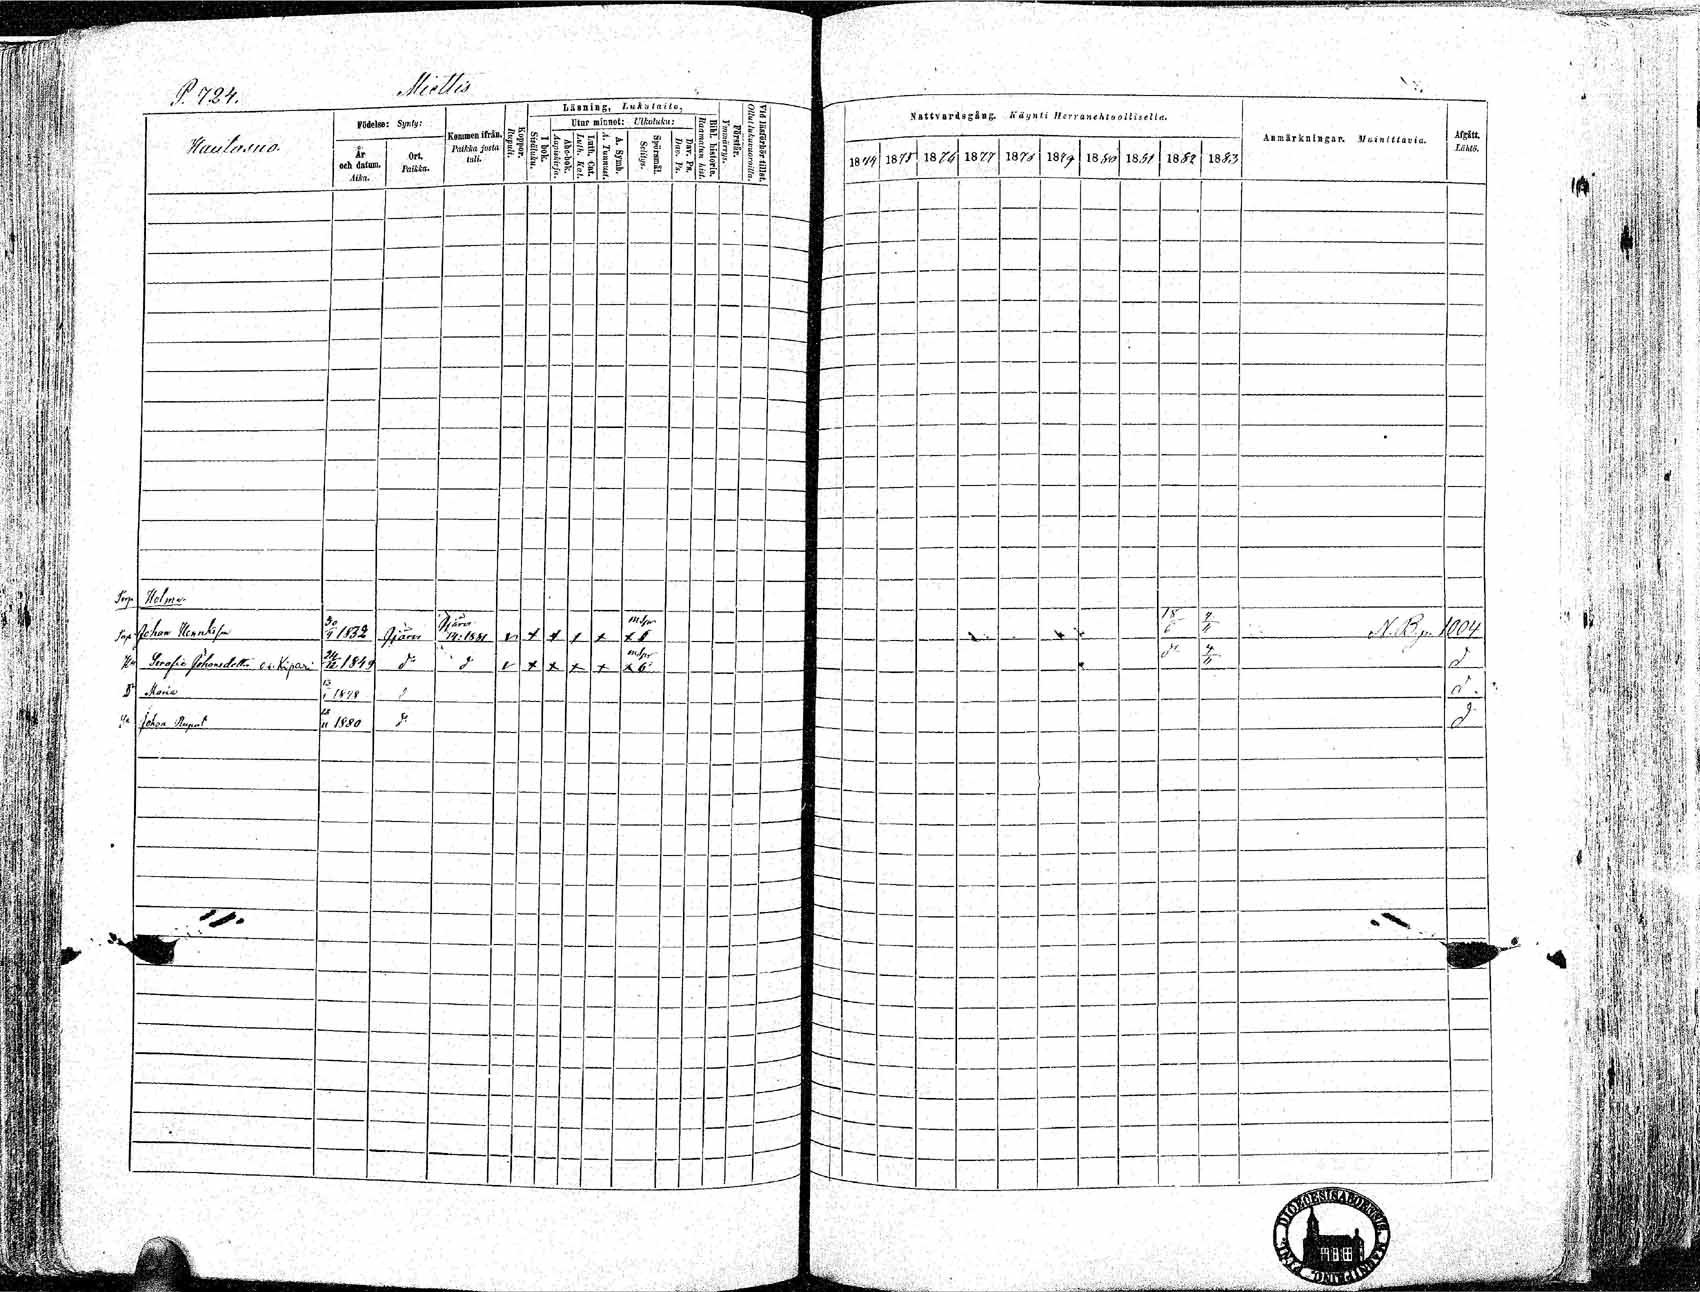 P. 724.
Miettis
Haulasuo.
Födelse: Synty:
År och datum. Aika.
Ort. Paikka.
Kommen ifrån. Paikka josta tuli.
Koppor. Rupuli.
Läsning, Lukutaito,
I bok. Sisäluku.
Utur minnet: Ulkoluku:
Abc-bok. Aapiskirja.
Luth. Cat. Luth. Kat.
A. Symb. A. Tunnust.
Spörsmål. Selitys.
Dav. Ps. Dav. Ps.
Bibl. historia. Raamatun hist.
Förstår. Ymmärrys.
Vid läsförhör tillst. Ollut lukuvuoroilla.
Nattvardsgång. Käynti Herranehtoollisella.
1874 1875 1876 1877 1878 1879 1880 1881 1882 1883
Anmärkningar. Muistittavia.
Afgått. Lähtö.
Torp Holma.
Johan Henriksson 30/9 1832 Kjäros 1881 18/6 N. By. 1004
Hu Serafia Johansdotter Kipari 24/12 1849 d:o d d:o d
Dr Maria 1878 d.
Johan August 1880 d:o d
DIOECESIS ABOENSIS